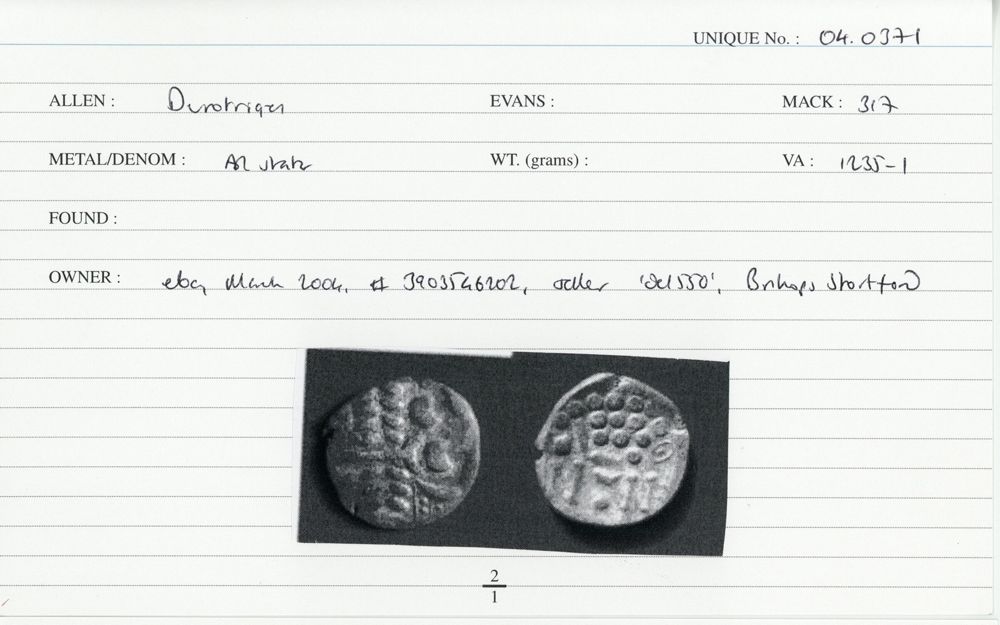 UNIQUE No. : 04.0371
ALLEN : Durotriges EVANS : MACK : 317
METAL/DENOM : AR stater WT. (grams) : VA : 1235-1
FOUND :
OWNER : ebay March 2004, # 3903546202, seller 'del550', Bishops Stortford
2
1